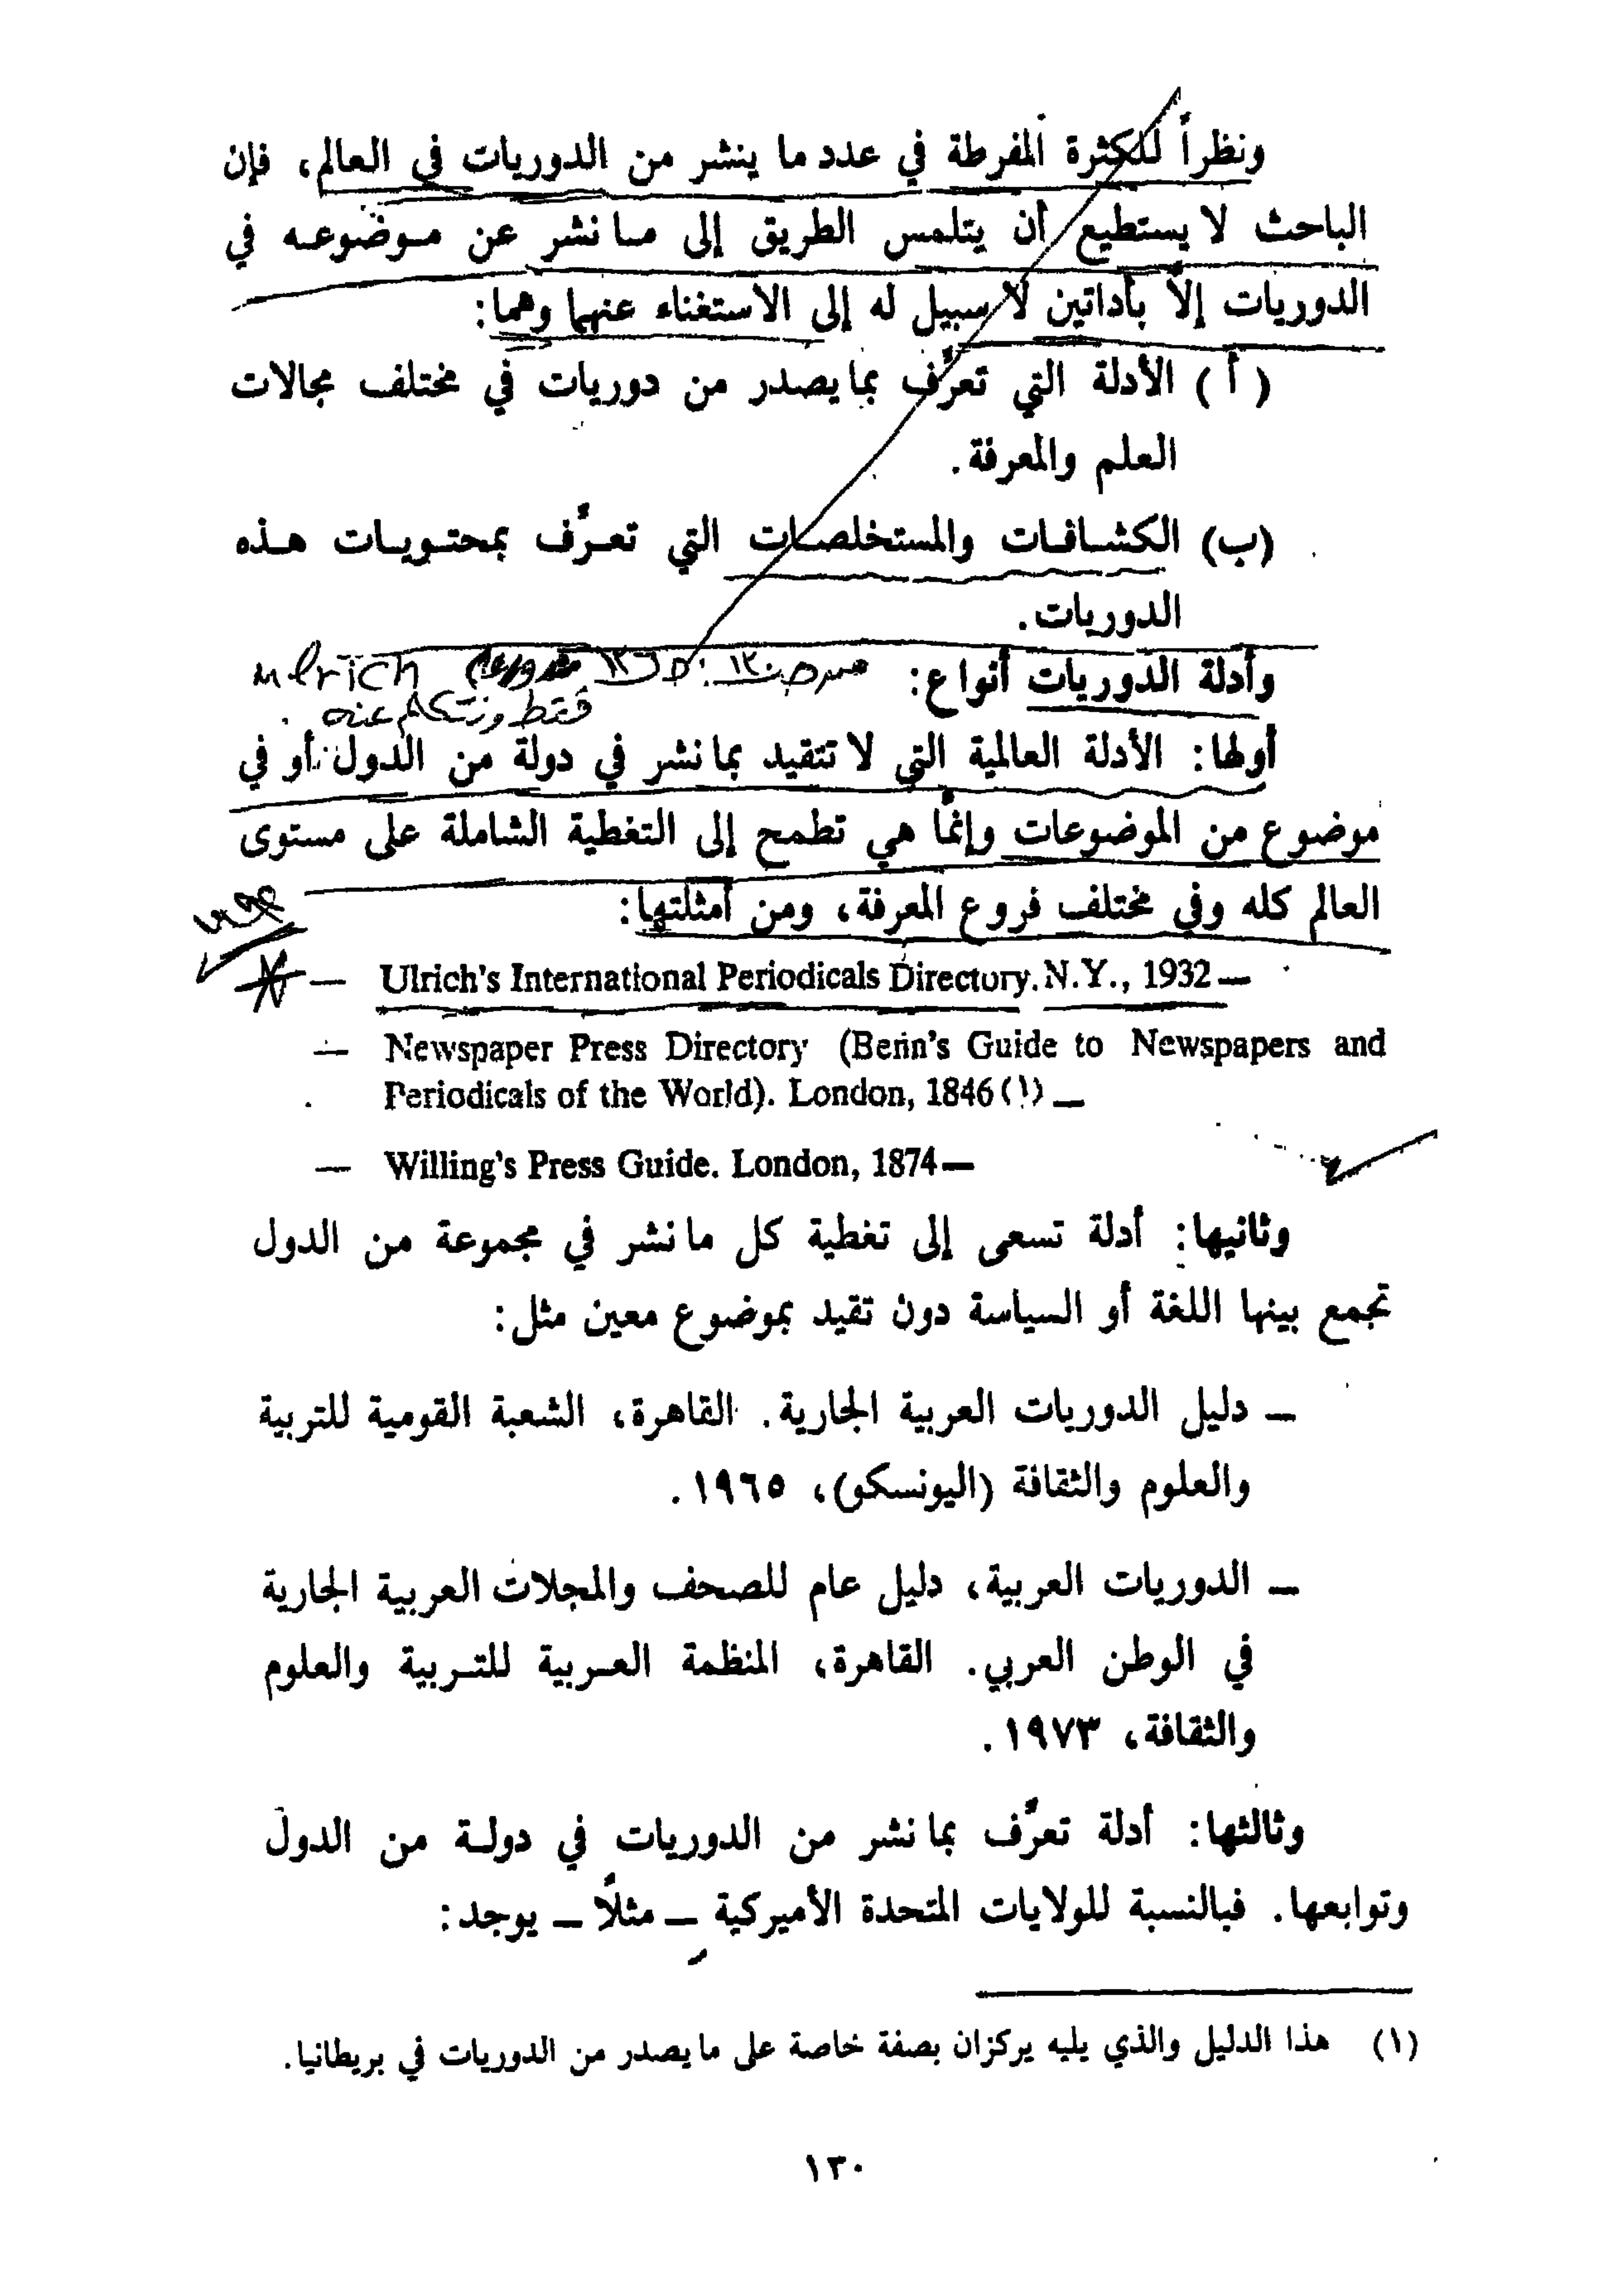 ونظراً للكثرة المفرطة في عدد ما ينشر من الدوريات في العالم، فإن
الباحث لا يستطيع أن يتلمس الطريق إلى ما نشر عن موضوعه في
الدوريات إلاّ بأداتين لا سبيل له إلى الاستغناء عنهما وهما:
( أ ) الأدلة التي تعرِّف بما يصدر من دوريات في مختلف مجالات
العلم والمعرفة.
(ب) الكشافات والمستخلصات التي تعرِّف بمحتويات هذه
الدوريات.
وأدلة الدوريات أنواع:
ulrich
فقط ونتكلم عنه
أولها: الأدلة العالمية التي لا تتقيد بما نشر في دولة من الدول أو في
موضوع من الموضوعات وإنمَّا هي تطمح إلى التغطية الشاملة على مستوى
العالم كله وفي مختلف فروع المعرفة، ومن أمثلتها:
— Ulrich's International Periodicals Directory. N.Y., 1932 —
— Newspaper Press Directory (Benn's Guide to Newspapers and
Periodicals of the World). London, 1846 (١) —
— Willing's Press Guide. London, 1874 —
وثانيها: أدلة تسعى إلى تغطية كل ما نشر في مجموعة من الدول
تجمع بينها اللغة أو السياسة دون تقيد بموضوع معين مثل:
— دليل الدوريات العربية الجارية. القاهرة، الشعبة القومية للتربية
والعلوم والثقافة (اليونسكو)، ١٩٦٥.
— الدوريات العربية، دليل عام للصحف والمجلات العربية الجارية
في الوطن العربي. القاهرة، المنظمة العربية للتربية والعلوم
والثقافة، ١٩٧٣.
وثالثها: أدلة تعرِّف بما نشر من الدوريات في دولة من الدول
وتوابعها. فبالنسبة للولايات المتحدة الأميركية — مثلاً — يوجد:
(١) هذا الدليل والذي يليه يركزان بصفة خاصة على ما يصدر من الدوريات في بريطانيا.
١٣٠